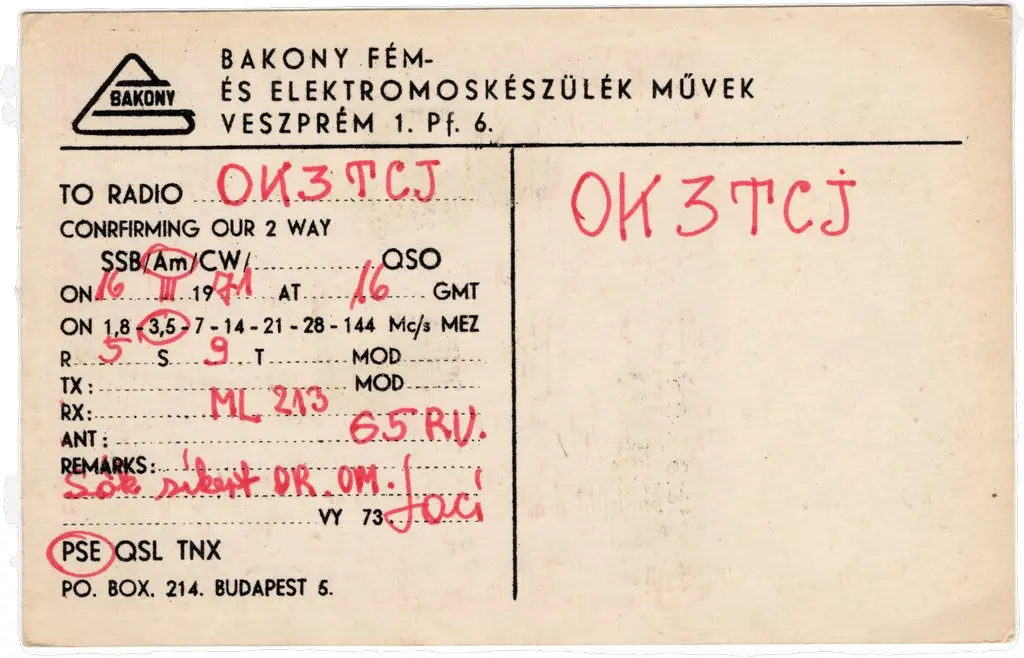 BAKONY
BAKONY FÉM-
ÉS ELEKTROMOSKÉSZÜLÉK MŰVEK
VESZPRÉM 1. Pf. 6.
TO RADIO OK3TCJ
CONRFIRMING OUR 2 WAY
SSB/Am/CW/ QSO
ON 16 III 1971 AT 16 GMT
ON 1,8 - 3,5 - 7 - 14 - 21 - 28 - 144 Mc/s MEZ
R 5 S 9 T MOD
TX: MOD
RX: ML 213
ANT: G5RV.
REMARKS:
Sók sikert DR. OM.
VY 73. Laci
PSE QSL TNX
PO. BOX. 214. BUDAPEST 5.
OK3TCJ